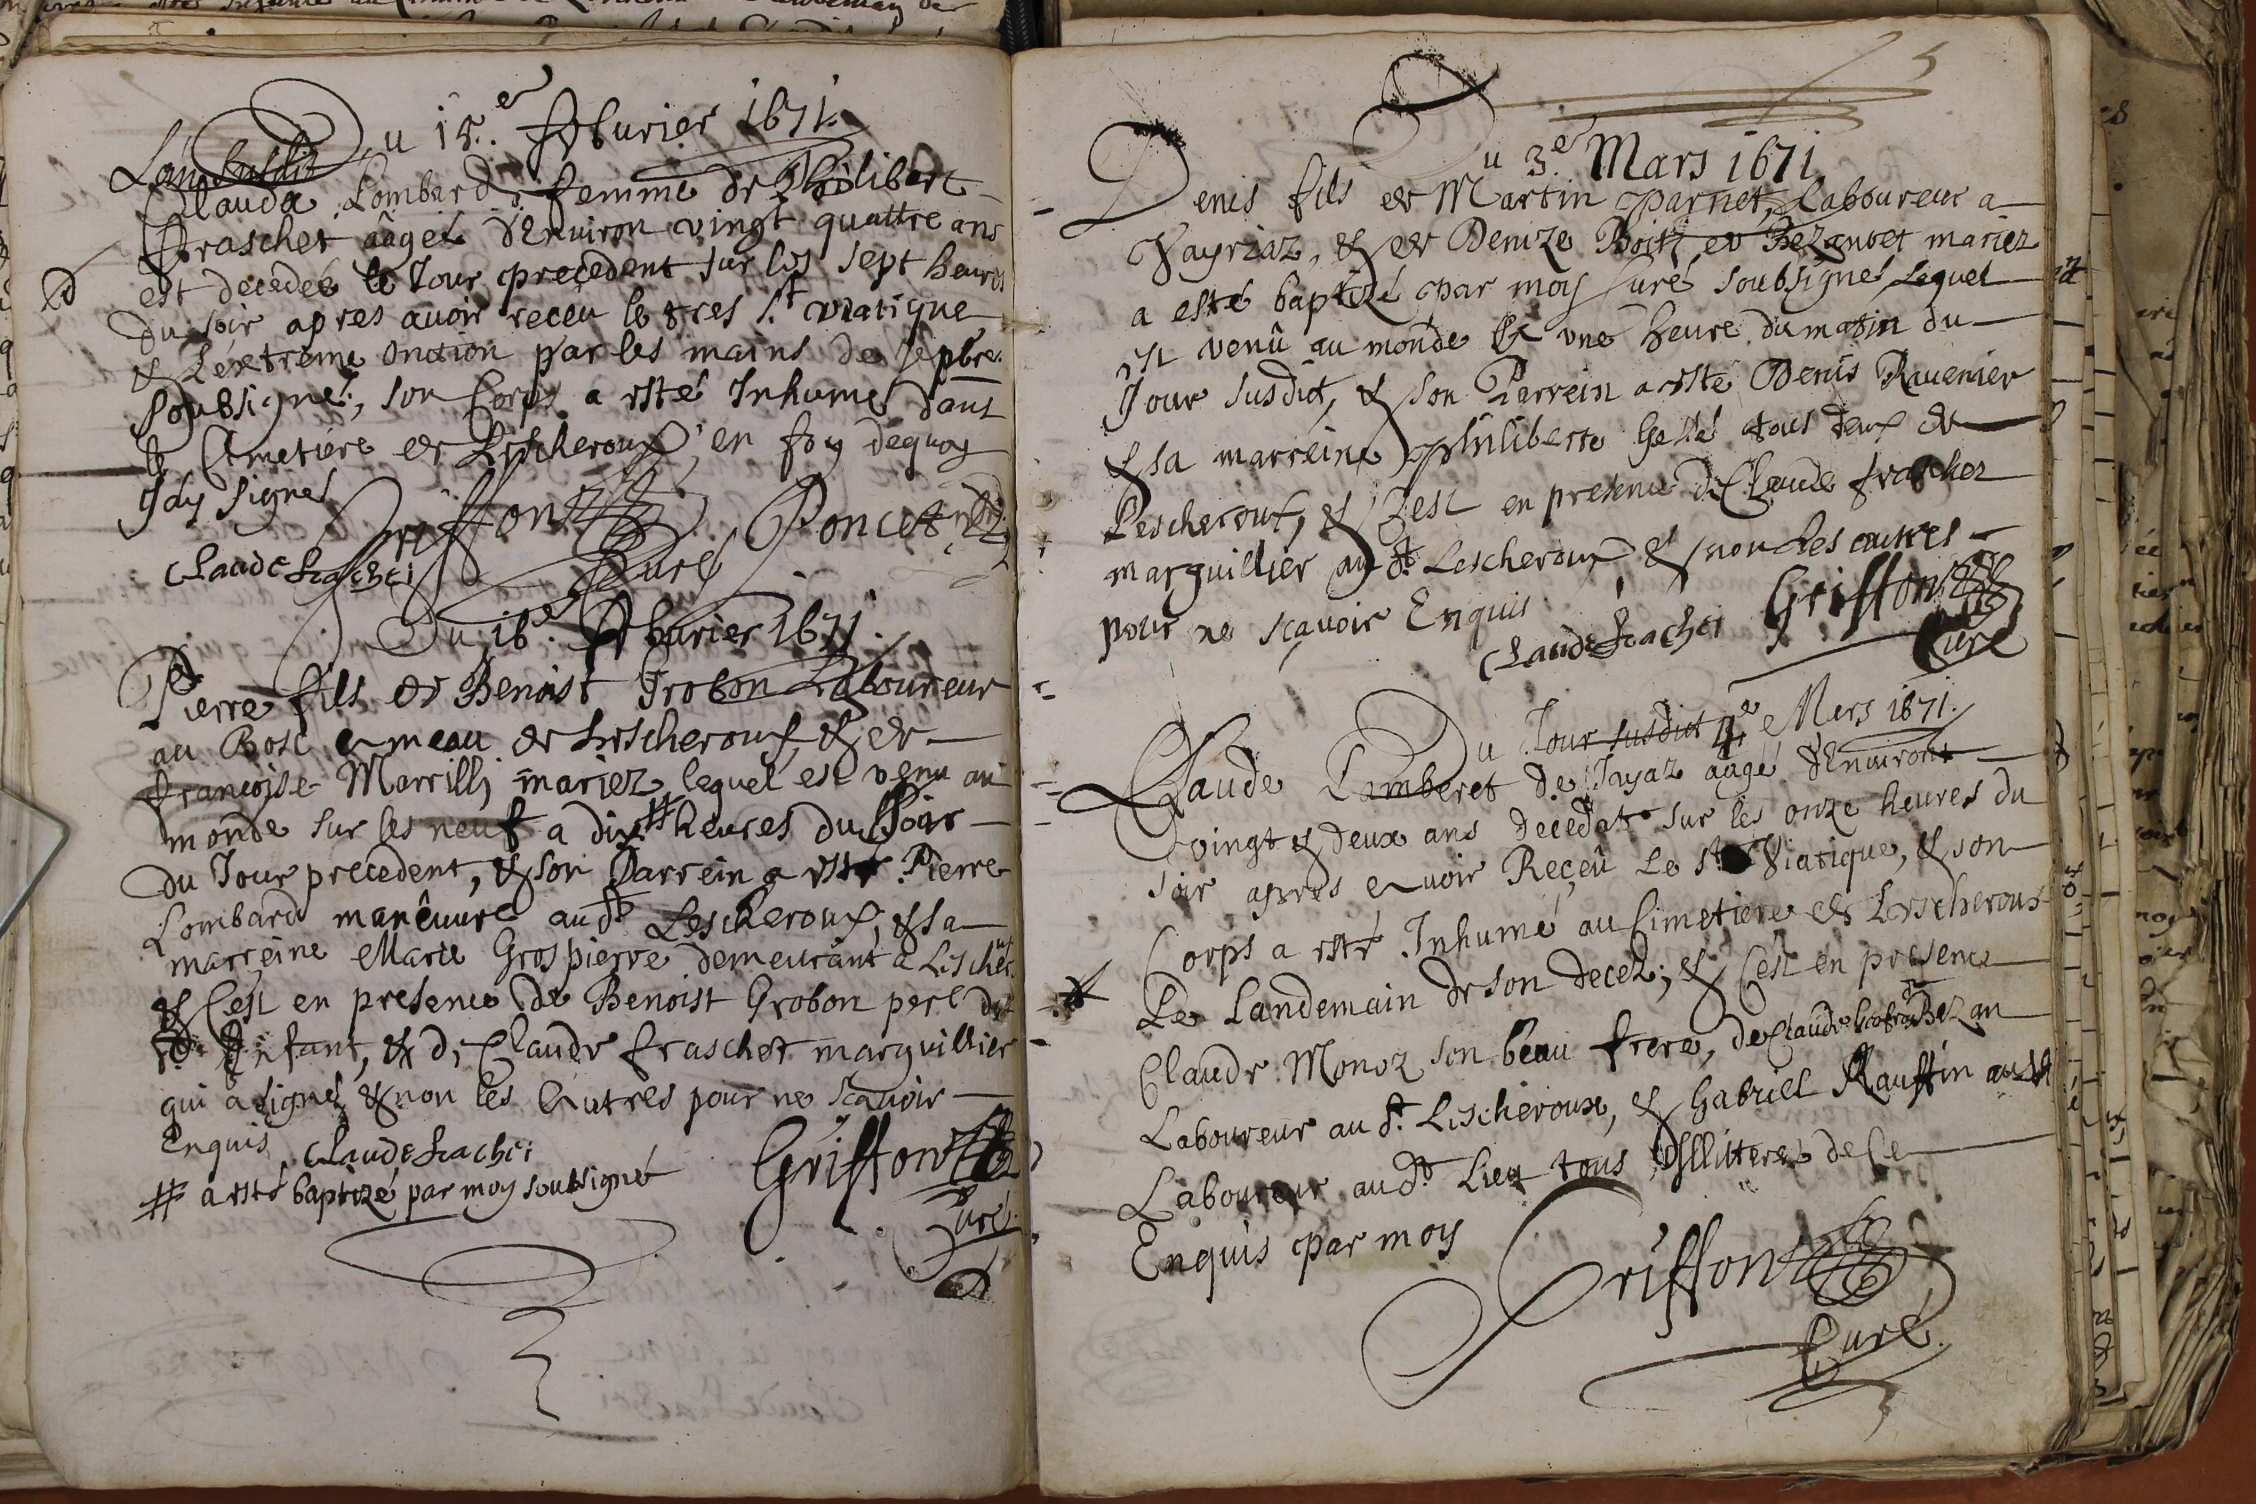 Du 15.er feburier 1671.
Clauda Lombard femme de Philibert
fraschet aâgeé d'Enuiron vingt quattre ans
est decedeé le Jour precedent sur les sept heures
du soir apres auoir receu le tres St viatique
& L'extreme onction par les mains de
soubsigné, son Corps a esté Inhumé dans
le Cimetiere de Lescheroux, en foy dequoy
J'ay signé
Griffon Curé Poncet
Claude frachet
Du 16.e feburier 1671.
Pierre fils de Benoist Grobon Laboureur
au Bosc ameau de Lescheroux & de
francoise Marrilli mariez lequel est venu au
monde sur les neuf a dix # heures du Soir
du Jour precedent, & son Parrein a esté Pierre
Lombard manêuure aud.t Lescheroux, & sa
marreine Marie Grospierre demeurânt a Lescher.
& C'est en presence de Benoist Grobon pere dud.
Enfant, & de Claude fraschet marguillier
qui a signé & non les Autres pour ne scauoir
Enquis Claude frachet
Griffon
# a esté baptizé par moy soubsigné
Curé.
5
Du 3.e Mars 1671
Denis fils de Martin Parnet, Laboureur a
Vayriaz, & de Denize mariez
a esté baptizé par moy Curé soubsigné Lequel
est venû au monde vne heure du matin du
Jour susdict, & son Parrein a esté Denis Rauenier
& sa marreine Philiberte tous deux de
Lescheroux, & C'est en presence de Claude fraschez
marguillier aud.t Lescheroux & non Les autres
pour ne scauoir Enquis
Claude frachet Griffon
Curé
Du Jour susdict 4.e Mars 1671.
Claude Lamberet de Jayaz aagé d'Enuiront
vingt & deux ans decedât sur les onze heures du
soir apres auoir Reçeû Le St Viatique, & son
Corps a esté Inhumé au Cimetiere de Lescheroux
Le Landemain de son decez; & C'est en presence
Claude Monoz son beau frere, de Claude
Laboureur au d.t Lescheroux, & Gabriel
Laboureur aud.t Lieu tous Illitteres de Ce
Enquis par moy
Griffon
Curé.